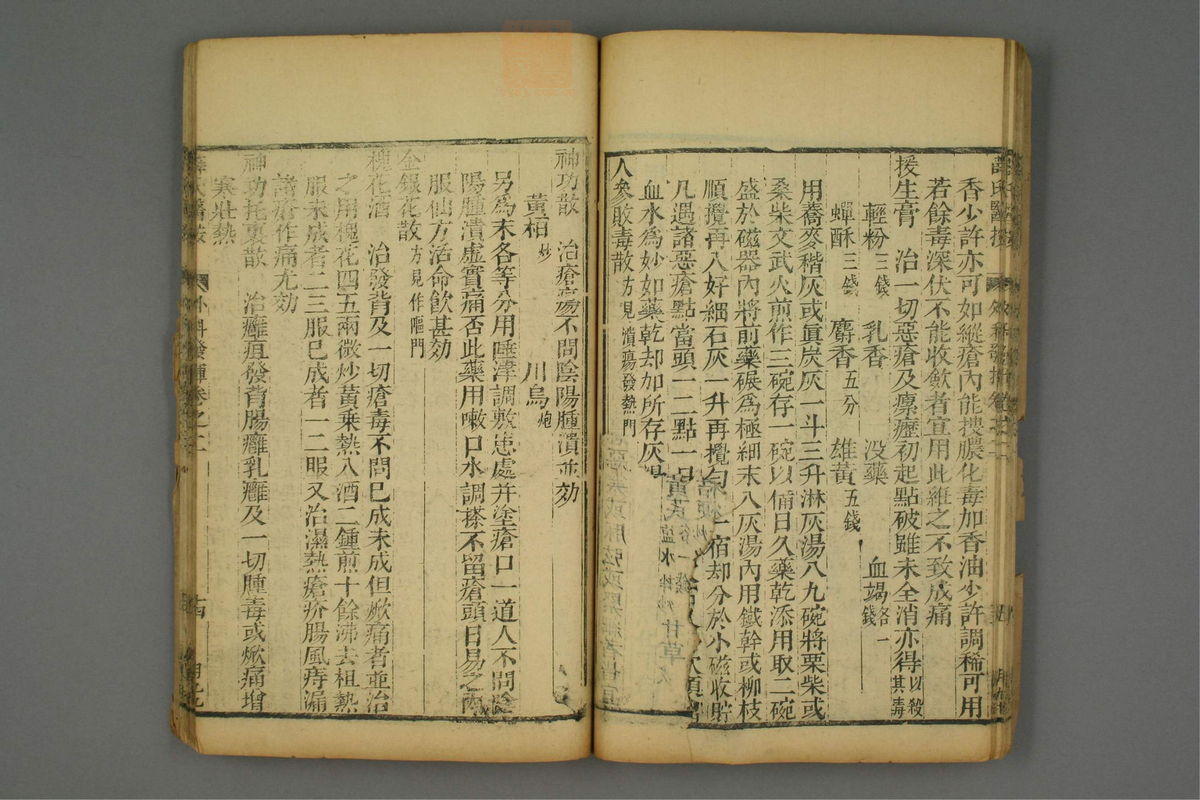 薛氏醫按 外科發揮卷之二
香少許亦可如縱瘡內能搜膿化毒加香油少許調稀可用
若餘毒深伏不能收斂者宜用此雍之不致成痛
援生膏 治一切惡瘡及瘰癧初起點破雖未全消亦得以殺其毒
輕粉三錢 乳香 沒藥 血竭各一錢
蟬酥三錢 麝香五分 雄黃五錢
用蕎麥稭灰或眞炭灰一斗三升淋灰湯八九碗將栗柴或
桑柴文武火煎作三碗存一碗以備日久藥乾添用取二碗
盛於磁器內將前藥碾爲極細末入灰湯內用鐵幹或柳枝
順攪再入好細石灰一升再攪勻 一宿却分於小磁收貯
凡遇諸惡瘡點當頭一二點一日
血水爲妙如藥乾却加所存灰湯
人參敗毒散方見潰瘍發熱門
神功散 治瘡瘍不問陰陽腫潰並効
黃柏炒 川烏炮
另爲末各等分用唾津調敷患處并塗瘡口一道人不問陰
陽腫潰虛實痛否此藥用嗽口水調搽不留瘡頭日易之兩
服仙方活命飲甚効
金銀花散方見作嘔門
槐花酒 治發背及一切瘡毒不問已成未成但焮痛者並治
之用槐花四五兩微炒黃乘熱入酒二鍾煎十餘沸去柤熱
服未成者二三服已成者一二服又治濕熱瘡疥腸風痔漏
諸瘡作痛尤効
神功托裏散 治癰疽發背腸癰乳癰及一切腫毒或焮痛增
寒壯熱
薛氏醫按 外科發揮卷之二